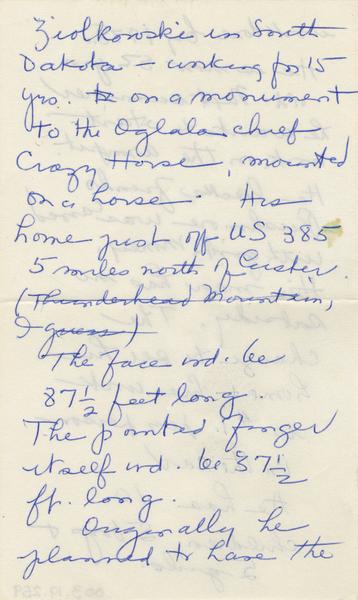 Ziolkowski in South
Dakota - working for 15
yrs. to on a monument
to the Oglala chief
Crazy Horse, mounted
on a horse. His
home just off US 385
5 miles north of Custer.
(Thunderhead Mountain,
I guess)
The face wd. be
87 1/2 feet long.
The pointed finger
itself wd. be 37 1/2
ft. long.
Originally he
planned to have the